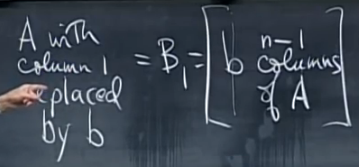 A with
column 1
replaced
by b
= B₁ =
b n-1
columns
of A